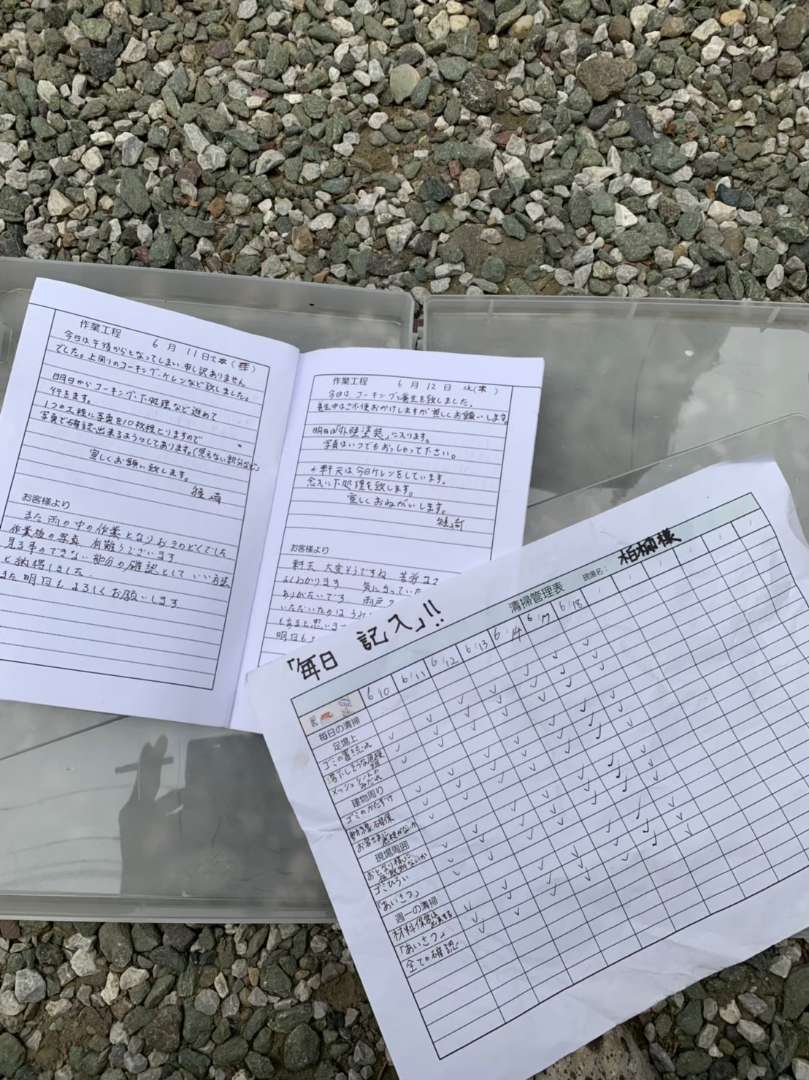 作業工程 6月11日
今日は午後からとなってしまい申し訳ありません
でした。上周りのコーキング・ケレンなど致しました。
明日からコーキング、下処理など進めて
行きます。
1つの工程に写真を10枚程とりますので
写真でも確認出来るようにしてあります。
宜しくお願い致します。
お客様より
また雨の中の作業となりおきのどくでした
作業後の写真 有難うございます
見る事のできない部分の確認として いい方法
と納得しました
また明日もよろしくお願いします
作業工程 6月12日 (木)
今日はコーキングと養生を致しました。
養生中はご不便おかけしますが宜しくお願いします。
明日は「外壁塗装」に入ります。
写真はいつでもおっしゃって下さい。
軒天は今日ケレンをしています。
下処理を致します。
宜しくおねがいします。
お客様より
軒天 大変そうですね
よくわかります 気になっていた
ありがたいです
いただいたのは
明日も
「毎日 記入」!!
清掃管理表 現場名: 柏柳様
6/10 6/11 6/12 6/13 6/14 6/17 6/18
毎日の清掃
足場上
建物周り
ゴミのかたずけ
現場周囲
ゴミひろい
「あいさつ」
週一の清掃
「あいさつ」
全ての確認